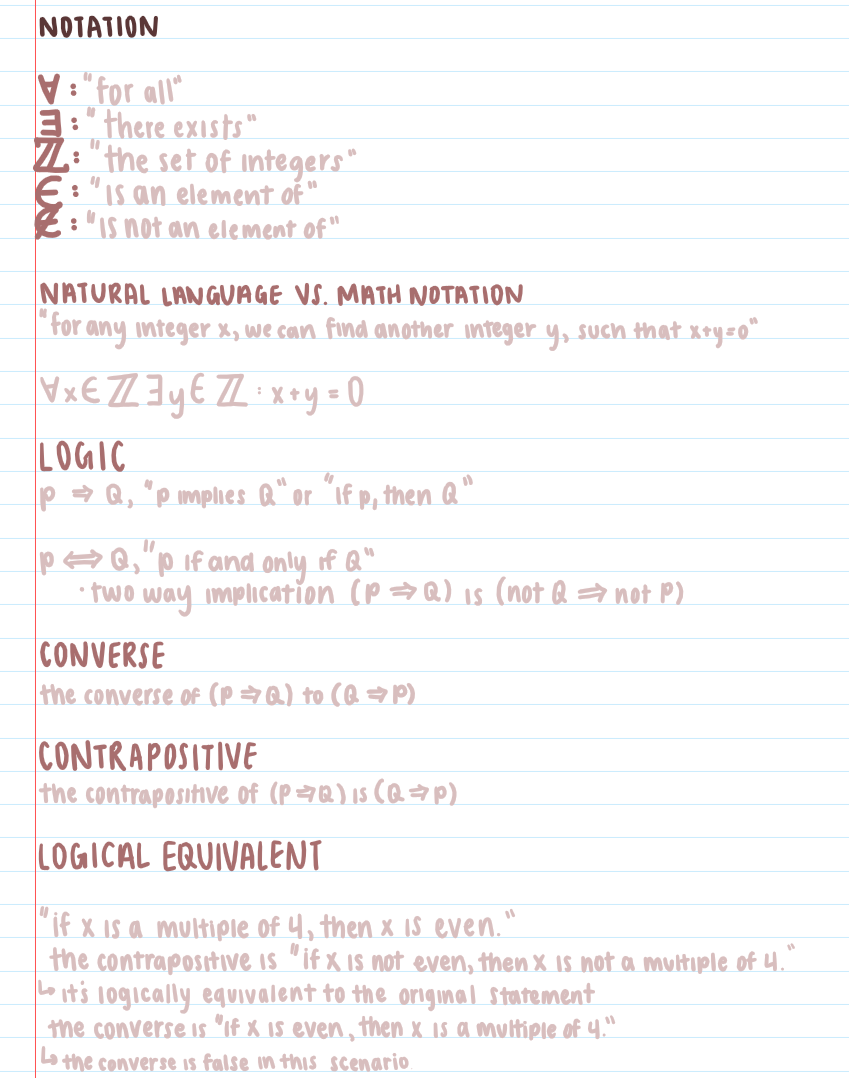 NOTATION
∀ : "for all"
∃ : "there exists"
ℤ : "the set of integers"
∈ : "is an element of"
∉ : "is not an element of"
NATURAL LANGUAGE VS. MATH NOTATION
"for any integer x, we can find another integer y, such that x+y=0"
∀x∈ℤ ∃y∈ℤ : x+y=0
LOGIC
P ⇒ Q, "P implies Q" or "if p, then Q"
P ⟺ Q, "P if and only if Q"
· two way implication (P ⇒ Q) is (not Q ⇒ not P)
CONVERSE
the converse of (P ⇒ Q) to (Q ⇒ P)
CONTRAPOSITIVE
the contrapositive of (P ⇒ Q) is (Q ⇒ P)
LOGICAL EQUIVALENT
"if x is a multiple of 4, then x is even."
the contrapositive is "if x is not even, then x is not a multiple of 4."
↳ it's logically equivalent to the original statement
the converse is "if x is even, then x is a multiple of 4."
↳ the converse is false in this scenario